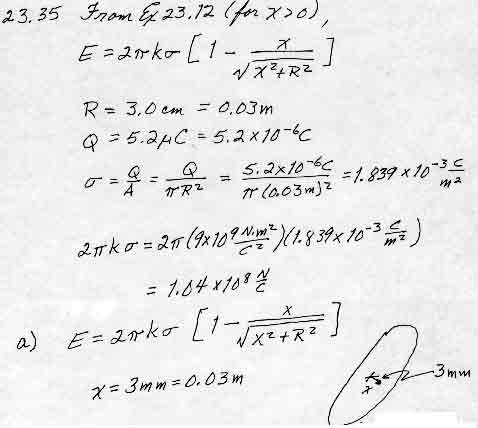 23.35 From Ex 23.12 (for x>0),
E = 2πkσ [ 1 - x/√(x²+R²) ]
R = 3.0 cm = 0.03m
Q = 5.2μC = 5.2x10⁻⁶C
σ = Q/A = Q/πR² = 5.2x10⁻⁶C/π(0.03m)² = 1.839 x 10⁻³ C/m²
2πkσ = 2π(9x10⁹ N·m²/C²)(1.839x10⁻³ C/m²)
= 1.04 x10⁸ N/C
a) E = 2πkσ [ 1 - x/√(x²+R²) ]
x = 3mm = 0.03m
3mm
x